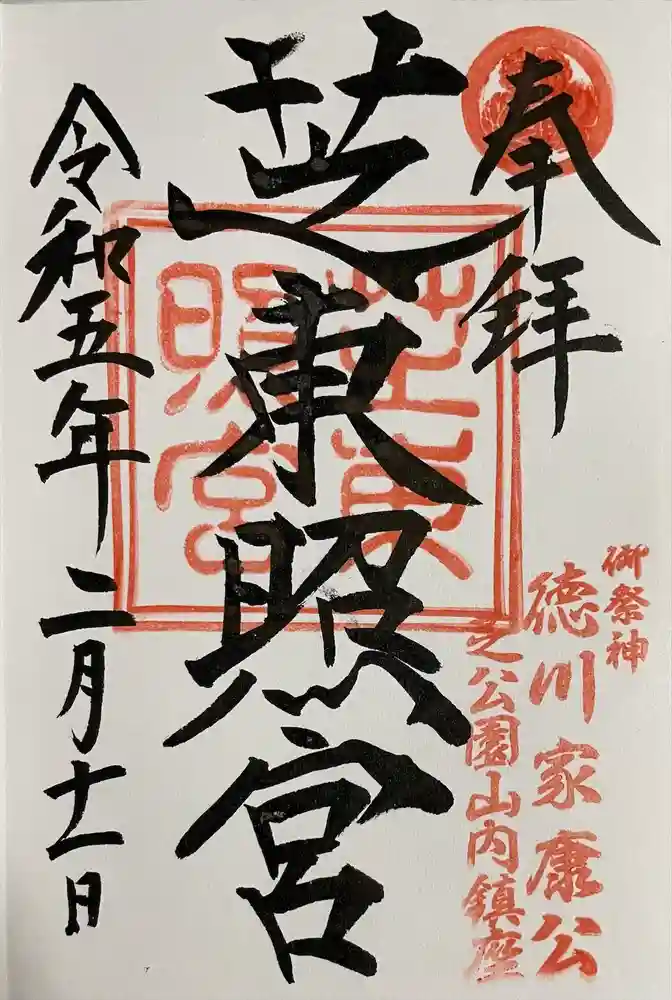 奉拝
御祭神
徳川家康公
芝公園山内鎮座
芝東照宮
芝東照宮
令和五年二月十一日